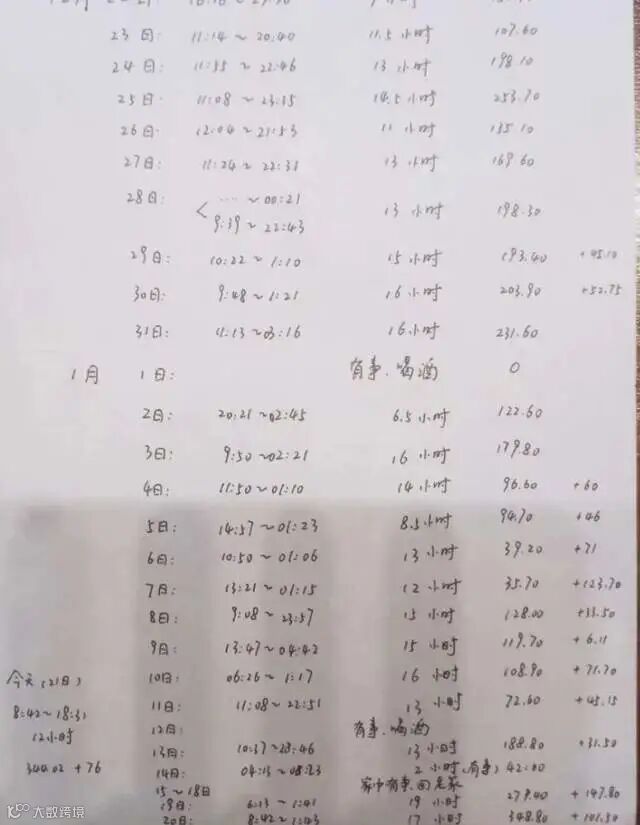 23日: 11:14~20:40 11.5小时 107.60
24日: 11:55~22:46 13小时 198.10
25日: 11:08~23:35 14.5小时 253.70
26日: 12:04~21:53 11小时 135.10
27日: 11:24~22:31 13小时 169.60
28日: <
…~00:21
9:39~22:43
13小时 198.30
29日: 10:22~1:10 15小时 193.40 +45.10
30日: 9:48~1:21 16小时 203.90 +52.75
31日: 11:13~03:16 16小时 231.60
1月 1日: 有事、喝酒 0
2日: 20:21~02:45 6.5小时 122.60
3日: 9:50~02:21 16小时 179.80
4日: 11:50~01:10 14小时 96.60 +60
5日: 14:57~01:23 8.5小时 94.70 +46
6日: 10:50~01:06 13小时 39.20 +71
7日: 13:21~01:15 12小时 35.70 +123.70
8日: 9:08~23:57 15小时 128.00 +33.50
9日: 13:47~04:42 15小时 119.70 +6.11
10日: 06:26~1:17 16小时 108.90 +71.70
11日: 11:08~22:51 13小时 72.60 +45.15
12日: 有事、喝酒
13日: 10:37~23:46 13小时 188.80 +31.50
14日: 04:13~08:23 2小时(有事) 42.00
15~18日 家中有事回老家
19日: 6:13~1:41 19小时 279.40 +147.80
20日: 8:42~1:43 17小时 348.80 +101.50
今天(21日)
8:42~18:31
12小时
344.02 +76
大数跨境